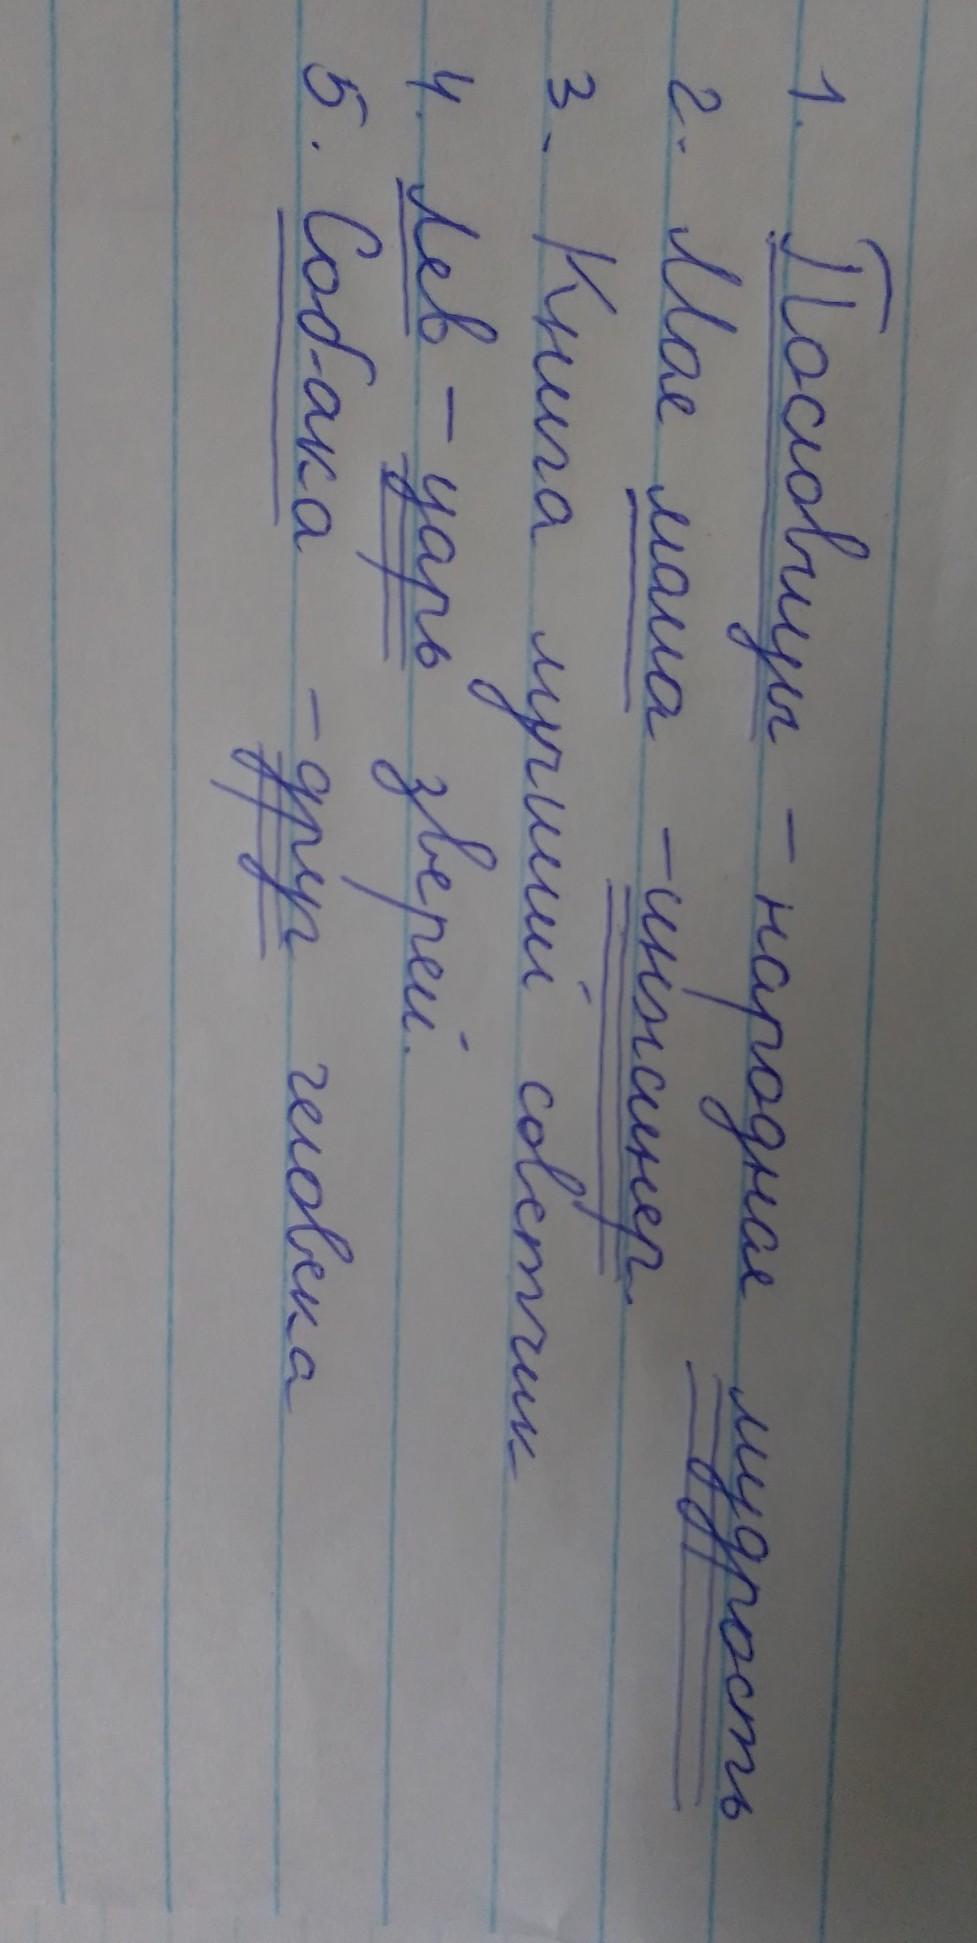 1. Пословицы – народная мудрость
2. Моя мама – инженер.
3. Книга лучший советчик
4. Лев – царь зверей.
5. Собака – друг человека